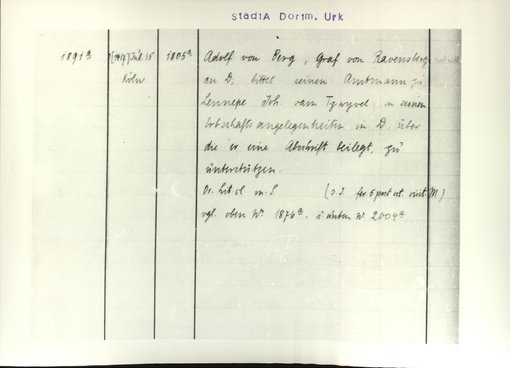 StadtA Dortm. Urk
1891a [1417] Juli 15 1805a Adolf von Berg, Graf von Ravensberg
Köln an D, bittet seinen Amtmann zu
Lennepe Joh. vam Tzwyvel in seinen
Erbschaftsangelegenheiten in D. über
die er eine Abschrift beilegt, zu
unterstützen.
Or. lit. cl. m. S. (o. J. fer. 5 post visit. M.)
vgl. oben Nr 1876a. u. unten Nr. 2004a